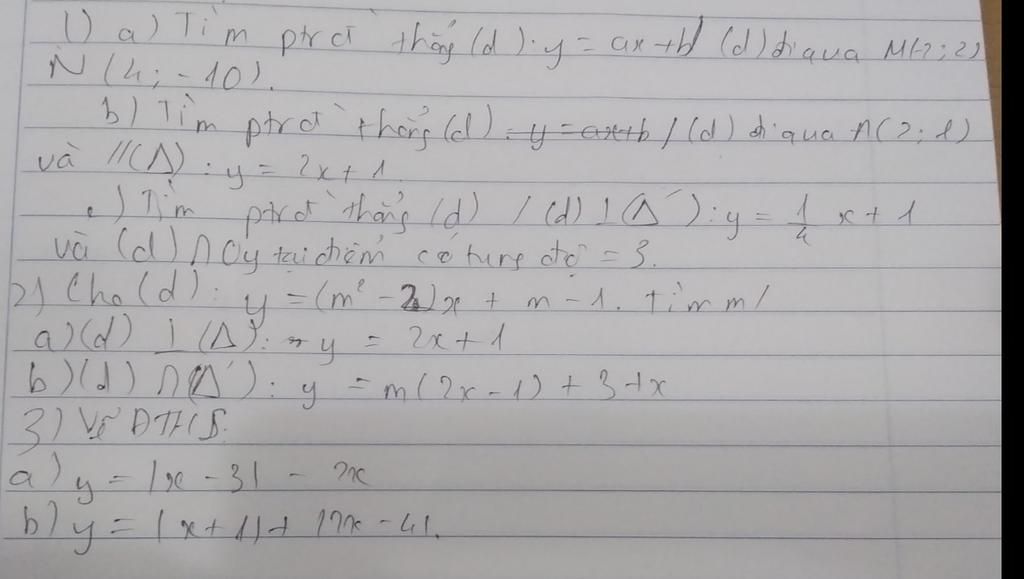 1) a) Tìm ptrđt thẳng (d): y = ax + b / (d) đi qua M(-2; 2)
N (4; -10).
b) Tìm ptrđt thẳng (d): y = ax + b / (d) đi qua A(2; 1)
và //(Δ): y = 2x + 1.
c) Tìm ptrđt thẳng (d) / (d) ⊥ (Δ'): y = 1/4 x + 1
và (d) ∩ Oy tại điểm có tung độ = 3.
2) Cho (d): y = (m² - 2)x + m - 1. tìm m /
a) (d) ⊥ (Δ): y = 2x + 1
b) (d) ∩ (Δ'): y = m(2x - 1) + 3 + x
3) Vẽ ĐTHS:
a) y = |x - 3| - 2x
b) y = |x + 1| + |2x - 4|.